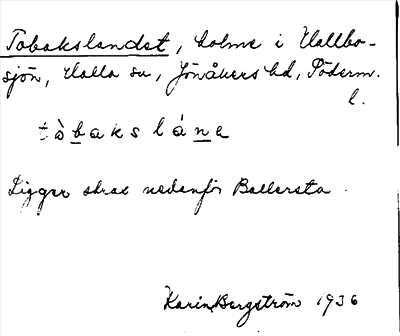 Tobakslandet, holme i Hallbo-
sjön, Halla sn, Jönåkers hd, Söderm.
l.
tòbaksláne
Ligger strax nedanför Ballersta.
Karin Bergström 1936